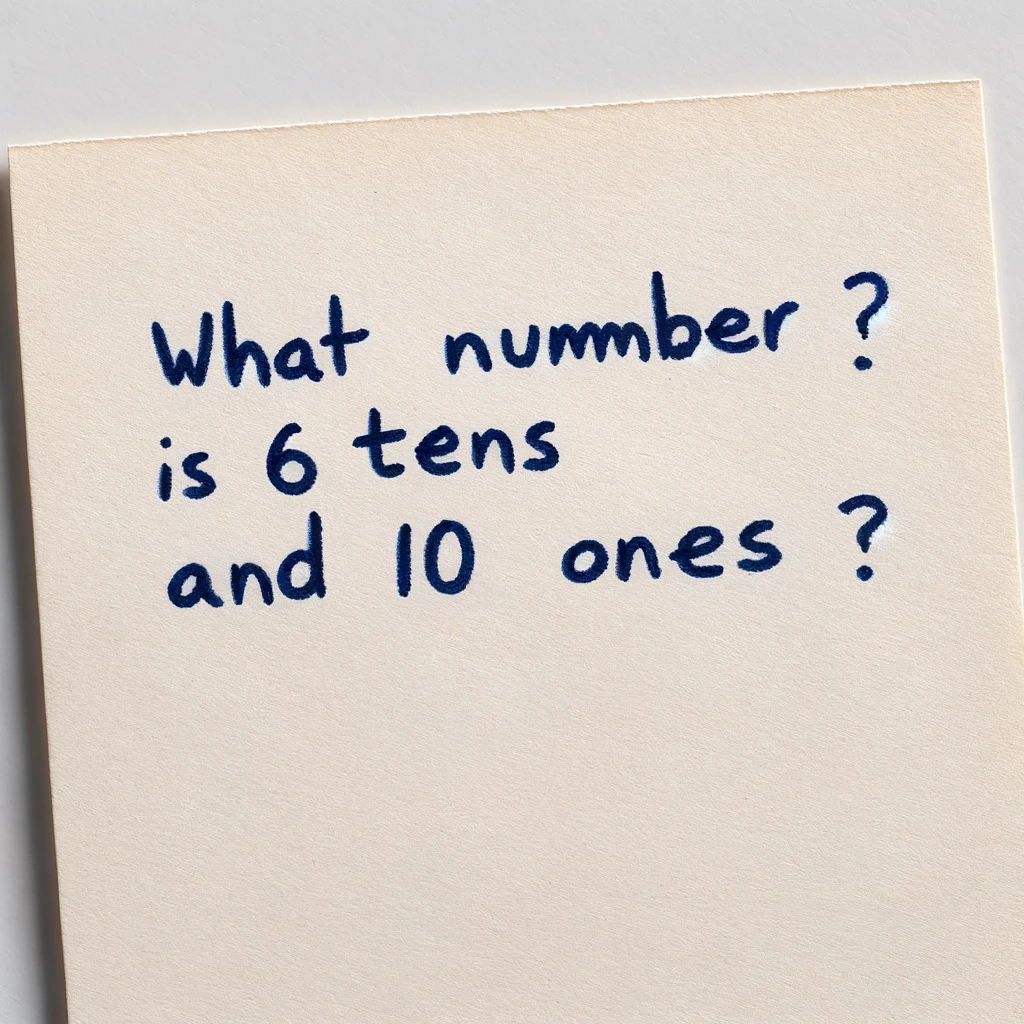 What nummber ?
is 6 tens
and 10 ones ?